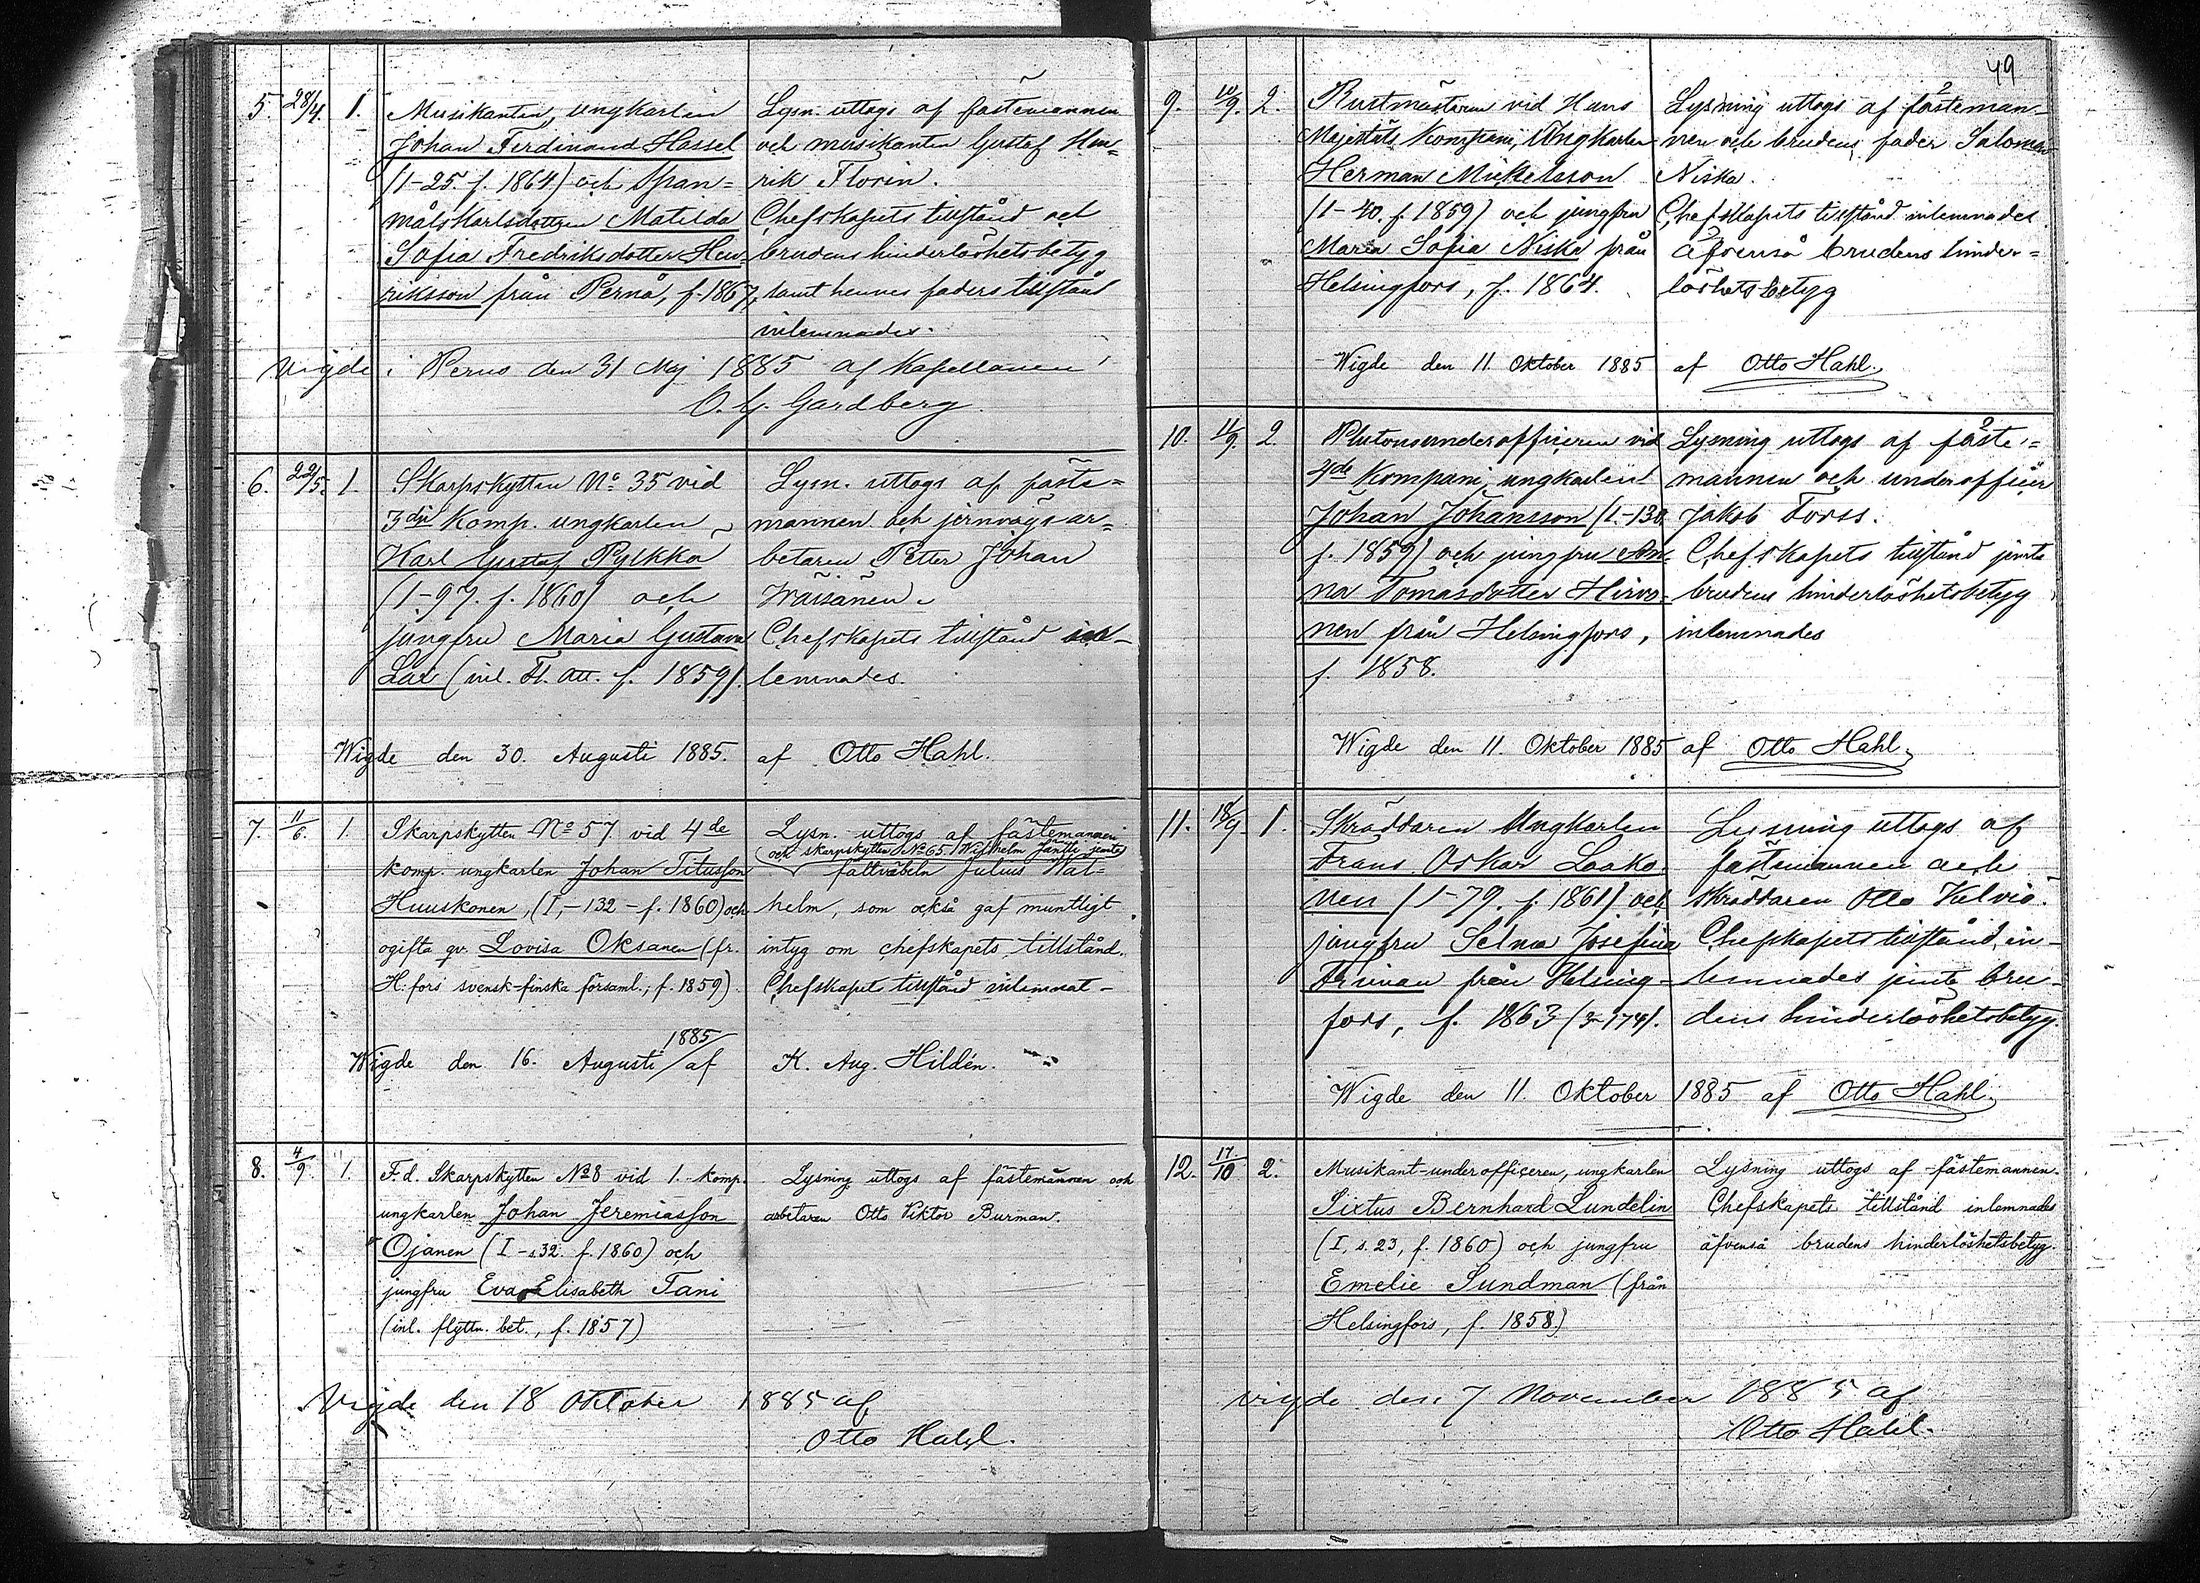 5. 28/4. 1. Musikanten, ungkarlen
Johan Ferdinand Hassel
(1-25. f. 1864) och Span=
målskarlsdottren Matilda
Sofia Fredriksdotter Hen=
riksson från Pernå, f. 1867,
Lysn. uttogs af fästemannen
och musikanten Gustaf Hen=
rik Florin.
Chefskapets tillstånd och
brudens hinderlöshetsbetyg
samt hennes faders tillstånd
inlemnades.
Vigde i Perno den 31 Maj 1885 af Kapellanen
O. G. Gardberg.
6. 22/5. 1. Skarpskytten No. 35 vid
3dje Komp. ungkarlen
Karl Gustaf Pylkkä
(1-97. f. 1860) och
jungfru Maria Gustava
Lax (inl. Fl. att. f. 1859).
Lysn. uttogs af fäste=
mannen och jernvägsar=
betaren Petter Johan
Wäisänen.
Chefskapets tillstånd in-
lemnades.
Wigde den 30. Augusti 1885. af Otto Hahl.
7. 11/6. 1. Skarpskytten No 57 vid 4de
komp. ungkarlen Johan Titusson
Huuskonen, (I,-132-f. 1860) och
ogifta qv. Lovisa Oksanen (fr.
H:fors svensk-finska församl., f. 1859).
Lysn. uttogs af fästemannen
och skarpskytten No 65. Wilhelm Jäntti jemte
fältväbeln Julius Wal=
helm, som också gaf muntligt
intyg om chefskapets tillstånd.
Chefskapets tillstånd inlemnat-
Wigde den 16. Augusti 1885/af K. Aug. Hildén.
8. 4/9. 1. F.d. Skarpskytten No 8 vid 1. komp.
ungkarlen Johan Jeremiasson
Ojanen (I-s32. f. 1860) och
jungfru Eva Elisabeth Tani
(inl. flyttn. bet., f. 1857)
Lysning uttogs af fästemannen och
arbetaren Otto Viktor Burman.
Vigde den 18 Oktober 1885 af
Otto Hahl.
49
9. 10/9. 2. Rustmästaren vid Hans
Majestäts Kompani, Ungkarlen
Herman Mickelsson
(1-40. f. 1859) och jungfru
Maria Sofia Niska från
Helsingfors, f. 1864.
Lysning uttogs af fästeman-
nen och brudens fader Salomon
Niska.
Chefskapets tillstånd inlemnades
äfvenså brudens hinder=
löshetsbetyg
Wigde den 11 Oktober 1885 af Otto Hahl.
10. 11/9. 2. Plutonsunderofficeren vid
4de Kompani, ungkarlen
Johan Johansson (1.-130
f. 1859) och jungfru An=
na Tomasdotter Hirvo=
nen från Helsingfors,
f. 1858.
Lysning uttogs af fäste=
mannen och underofficer
Jakob Forss.
Chefskapets tillstånd jemte
brudens hinderlöshetsbetyg
inlemnades
Wigde den 11. Oktober 1885 af Otto Hahl.
11. 18/9 1. Skräddaren Ungkarlen
Frans Oskar Laako=
nen (1-79. f. 1861) och
jungfru Selma Josefina
från Helsing=
fors, f. 1863 (3-174).
Lysning uttogs af
fästemannen och
skräddaren Otto Kelviö.
Chefskapets tillstånd in-
lemnades jemte bru-
dens hinderlöshetsbetyg.
Wigde den 11. Oktober 1885 af Otto Hahl.
12. 17/10 2. Musikant-underofficeren, ungkarlen
Sixtus Bernhard Lundelin
(I, s. 23, f. 1860) och jungfru
Emelie Sundman (från
Helsingfors, f. 1858.)
Lysning uttogs af fästemannen.
Chefskapets tillstånd inlemnades
äfvenså brudens hinderlöshetsbetyg.
Vigde den 7 November 1885 af
Otto Hahl.